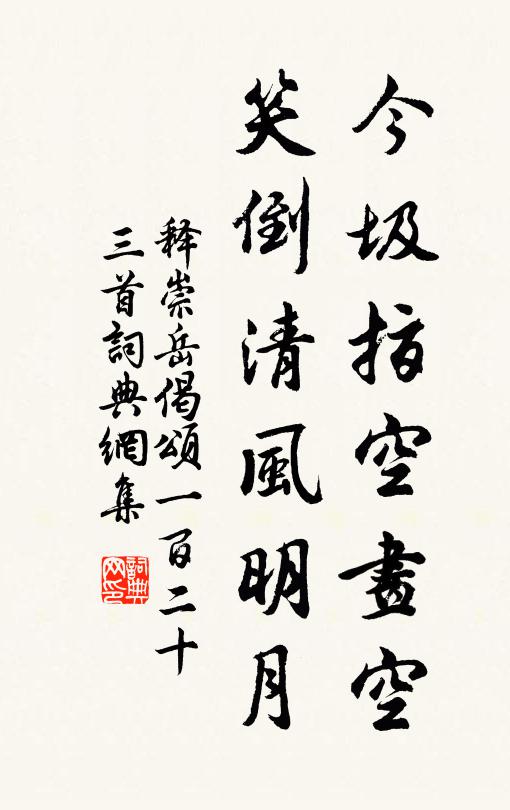 今圾指空畫空
笑倒清風明月
释崇岳偈頌一百二十
三首詞典網集
詞典
网印